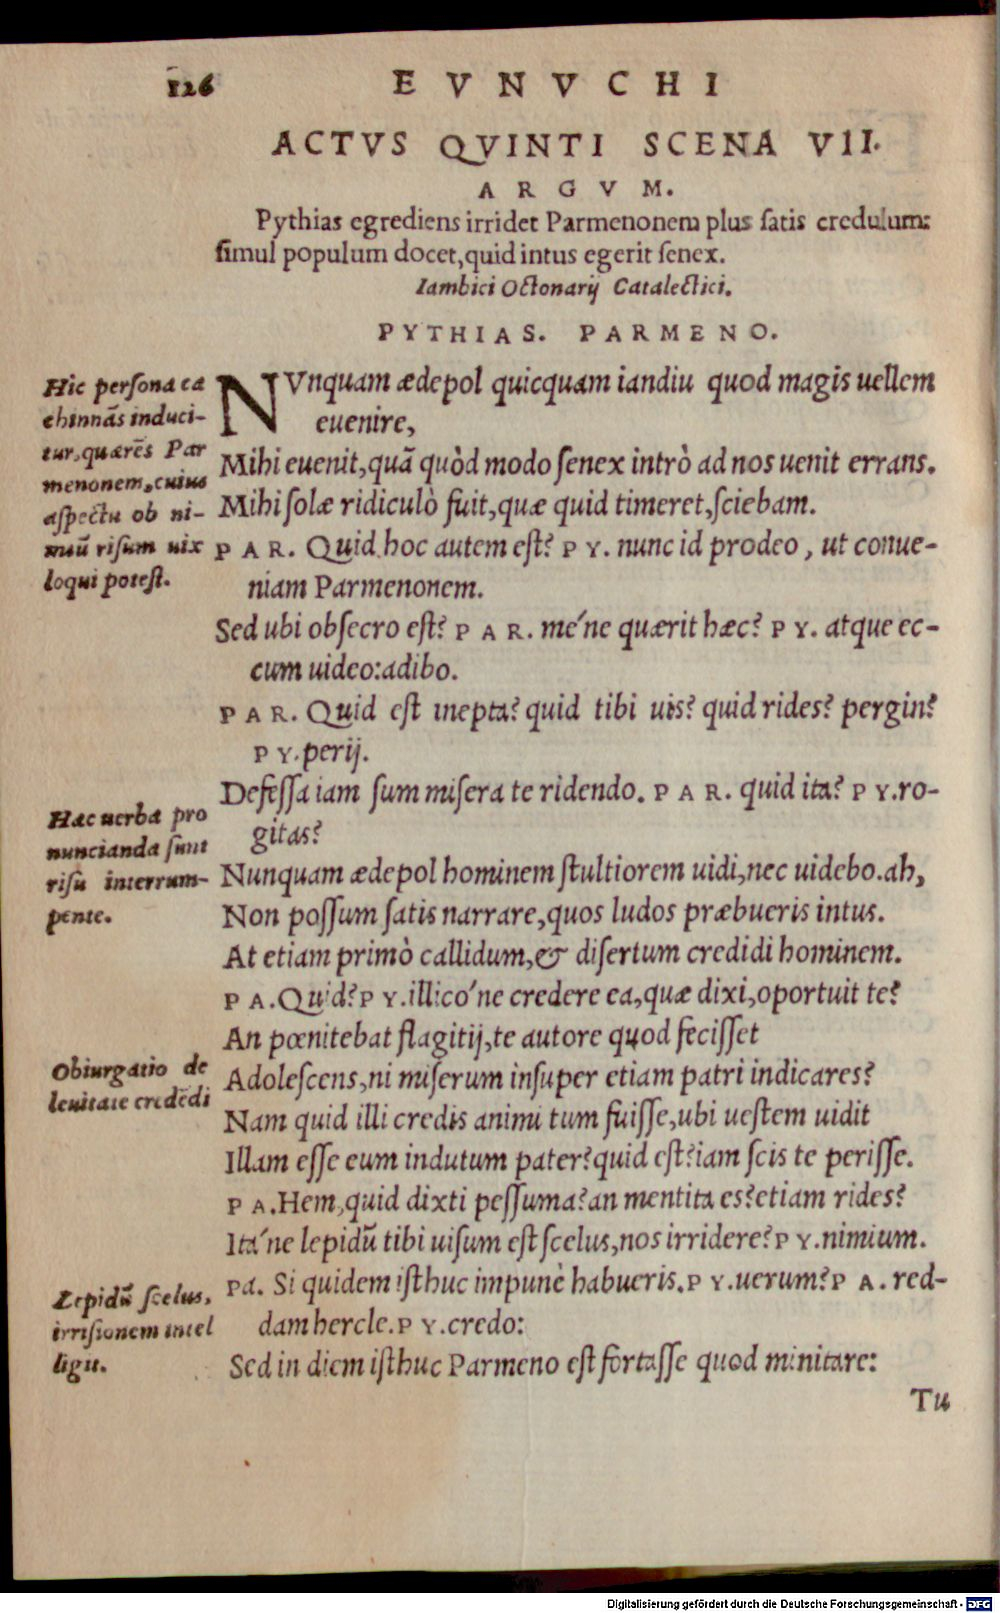 126
EVNVCHI
ACTVS QVINTI SCENA VII.
ARGVM.
Pythias egrediens irridet Parmenonem plus satis credulum:
simul populum docet, quid intus egerit senex.
Iambici Octonarij Catalectici.
PYTHIAS. PARMENO.
Hic persona ca
chinnãs induci-
tur, quærẽs Par
menonem, cuius
aspectu ob ni-
miũ risum uix
loqui potest.
NVnquam ædepol quicquam iandiu quod magis uellem
euenire,
Mihi euenit, quã quòd modo senex intrò ad nos uenit errans.
Mihi solæ ridiculò fuit, quæ quid timeret, sciebam.
PAR. Quid hoc autem est? PY. nunc id prodeo, ut conue-
niam Parmenonem.
Sed ubi obsecro est? PAR. me'ne quærit hæc? PY. atque ec-
cum uideo: adibo.
PAR. Quid est inepta? quid tibi uis? quid rides? pergin?
PY. perij.
Defessa iam sum misera te ridendo. PAR. quid ita? PY. ro-
gitas?
Hæc uerba pro
nuncianda sunt
risu interrum-
pente.
Nunquam ædepol hominem stultiorem uidi, nec uidebo. ah,
Non possum satis narrare, quos ludos præbueris intus.
At etiam primò callidum, & disertum credidi hominem.
PA. Quid? PY. illico'ne credere ea, quæ dixi, oportuit te?
An pœnitebat flagitij, te autore quod fecisset
Obiurgatio de
leuitate credẽdi
Adolescens, ni miserum insuper etiam patri indicares?
Nam quid illi credis animi tum fuisse, ubi uestem uidit
Illam esse eum indutum pater? quid est? iam scis te perisse.
PA. Hem, quid dixti pessuma? an mentita es? etiam rides?
Ita'ne lepidũ tibi uisum est scelus, nos irridere? PY. nimium.
Lepidũ scelus,
irrisionem intel
ligit.
PA. Si quidem isthuc impunè habueris. PY. uerum? PA. red-
dam hercle. PY. credo:
Sed in diem isthuc Parmeno est fortasse quod minitare:
Tu
Digitalisierung gefördert durch die Deutsche Forschungsgemeinschaft - DFG